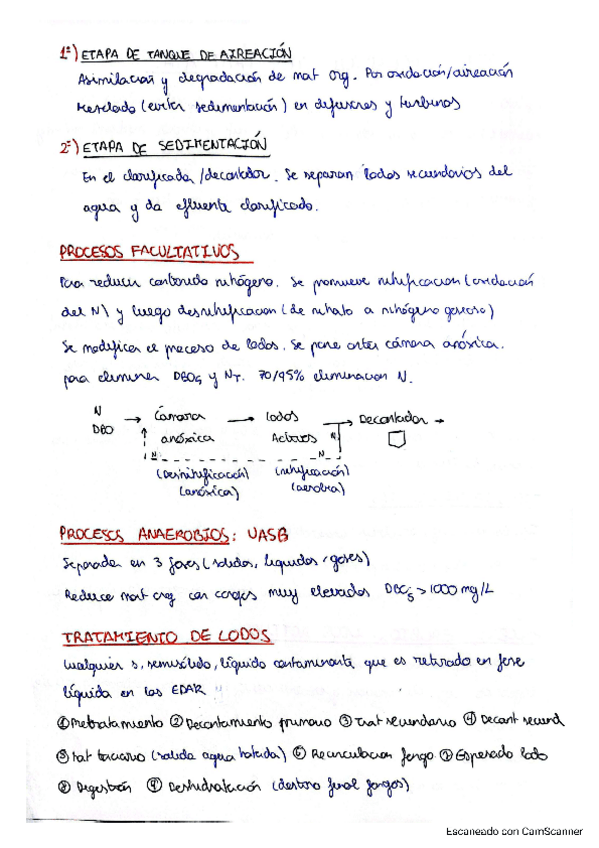 1º) ETAPA DE TANQUE DE AIREACIÓN
Asimilación y degradación de mat org. Por oxidación/aireación
Mezclado (evitar sedimentación) en difusores y turbinas
2º) ETAPA DE SEDIMENTACIÓN
En el clarificador/decantador. Se separan lodos secundarios del
agua y da efluente clarificado.
PROCESOS FACULTATIVOS
Para reducir contenido nitrógeno. Se promueve nitrificación (oxidación
del N) y luego desnitrificación (de nitrato a nitrógeno gaseoso)
Se modifica el proceso de lodos. Se pone antes cámara anóxica.
para eliminar DBO5 y NT. 70/95% eliminación N.
N
DBO → Cámara anóxica → lodos Activos → Decantador →
N N N
(Desnitrificación) (nitrificación)
(anóxica) (aerobia)
PROCESOS ANAEROBIOS: UASB
Separador en 3 fases (sólidos, líquidos, gases)
Reduce mat org con cargas muy elevadas DBO5 > 1000 mg/L
TRATAMIENTO DE LODOS
Cualquier s, semisólido, líquido contaminante que es retirado en fase
líquida en las EDAR
① Pretratamiento ② Decantamiento primario ③ Trat secundario ④ Decant secund
⑤ trat terciario (salida agua tratada) ⑥ Recirculación fango ⑦ Espesado lodo
⑧ Digestión ⑨ Deshidratación (destino final fangos)
Escaneado con CamScanner